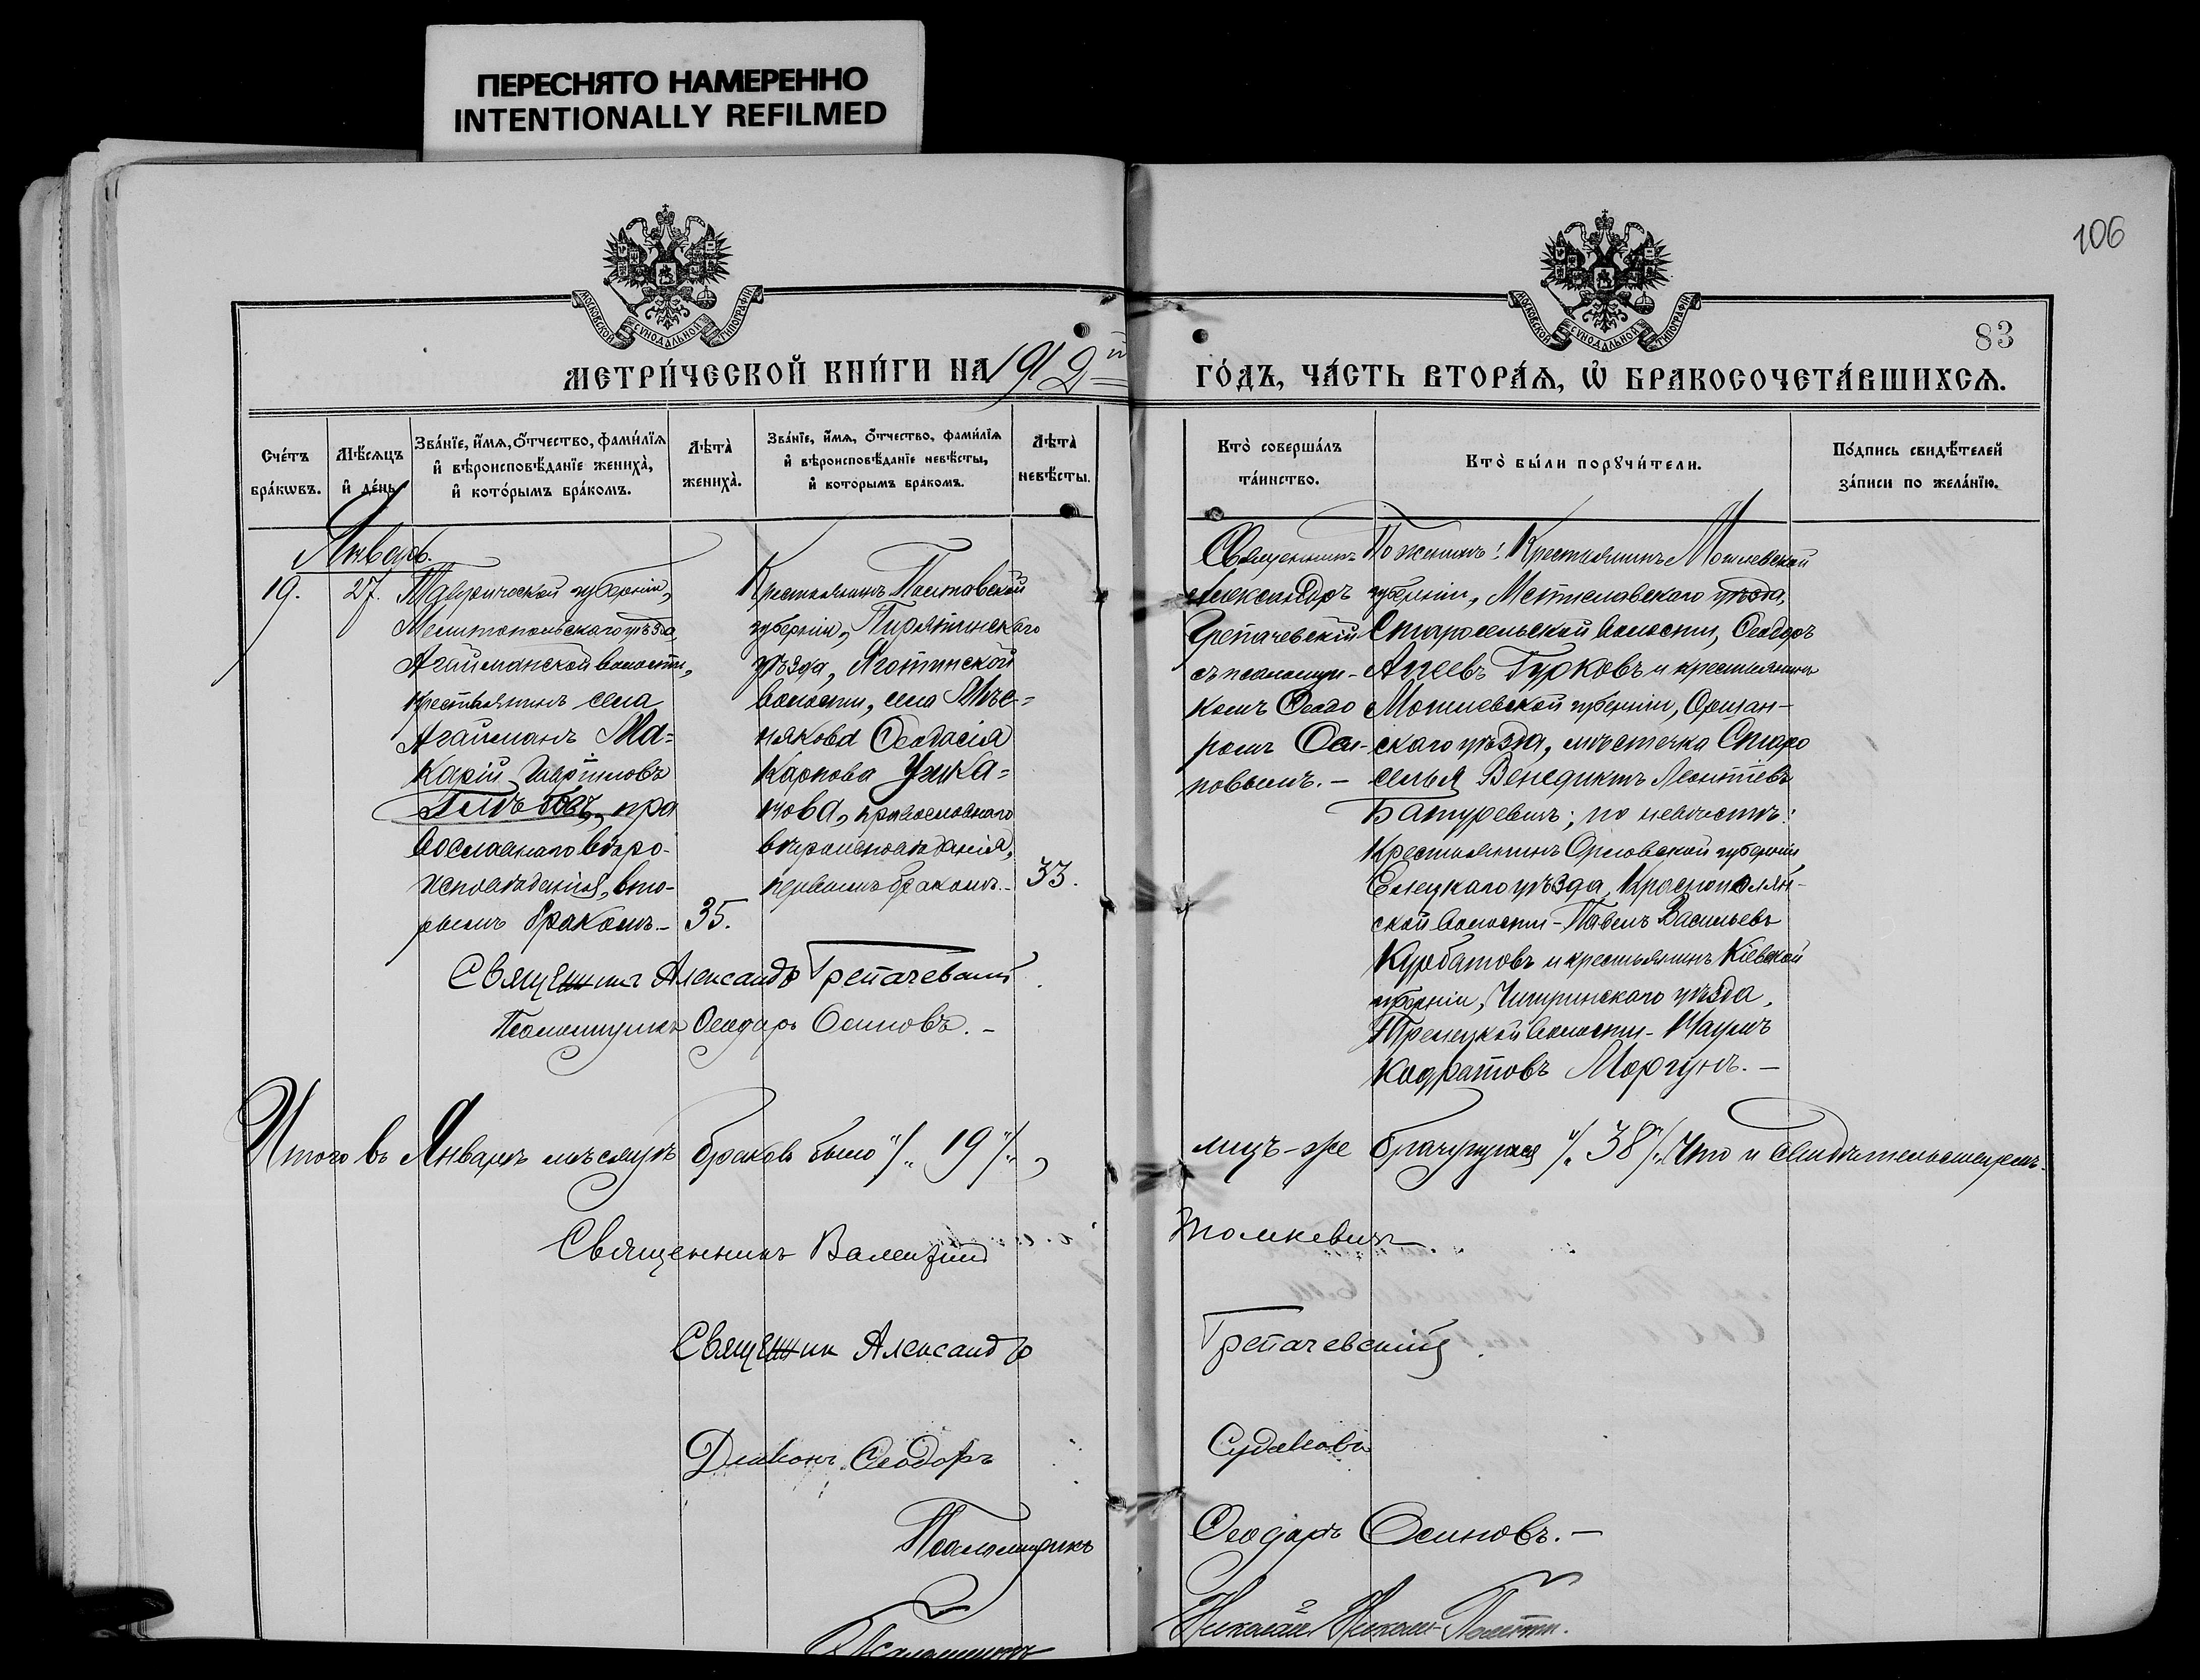 ПЕРЕСНЯТО НАМЕРЕННО
INTENTIONALLY REFILMED
106
МОСКОВСКОЙ СУНОДАЛЬНОЙ ТИПОГРАФІИ
МОСКОВСКОЙ СУНОДАЛЬНОЙ ТИПОГРАФІИ
83
МЕТРИ́ЧЕСКОЙ КНИ́ГИ НА 1912й
ГО́ДЪ, ЧА́СТЬ ВТОРА́Ѧ, Ѡ҆ БРАКОСОЧЕТА́ВШИХСѦ.
Сче́тъ бра́кѡвъ.
Мѣ́сѧцъ и҆ де́нь.
Зва́нїе, и҆́мѧ, ѻ҆́тчество, фами́лїѧ и҆ вѣроисповѣ́данїе жениха̀, и҆ кото́рымъ бра́комъ.
Лѣта̀ жениха̀.
Зва́нїе, и҆́мѧ, ѻ҆́тчество, фами́лїѧ и҆ вѣроисповѣ́данїе невѣ́сты, и҆ кото́рымъ бра́комъ.
Лѣта̀ невѣ́сты.
Кто̀ соверша́лъ та́инство.
Кто̀ бы́ли порꙋчи́тели.
По́дпись свидѣ́телей за́писи по жела́нїю.
Январь.
19.
27.
Таврической губерніи,
Мелитопольскаго уѣзда
Агайманской волости,
крестьянинъ села
Агайманъ Ма=
карій Гавріиловъ
пра
вославнаго вѣро-
исповѣданія, вто-
рымъ бракомъ.-
35.
Крестьянинъ Полтавской
губерніи, Пирятинскаго
уѣзда, Яготинской
волости, села
Ѳеодосія
Карпова
православнаго
вѣроисповѣданія,
первымъ бракомъ.-
33.
Священникъ
Александръ
Грепачевскій
съ псаломщи-
комъ Ѳеодо
ромъ Оси-
повымъ.-
По женихѣ: Крестьянинъ Могилевской
губерніи, Мстиславскаго уѣзда,
Старосельской волости, Ѳеодоръ
Агеевъ Гурковъ и крестьянинъ
Могилевской губерніи, Оршан-
скаго уѣзда, мѣстечка Старо
селья Венедиктъ Леонтіевъ
Батуревичъ; по невѣстѣ:
Крестьянинъ Орловской губерніи
Елецкаго уѣзда, Краснополян-
ской волости - Павелъ Васильевъ
Курбатовъ и крестьянинъ Кіевской
губерніи, Чигиринскаго уѣзда,
волости - Наумъ
Кодратовъ Моргунъ.-
Священникъ Александръ Грепачевскій
Псаломщикъ Ѳеодоръ Осиповъ.-
Итого въ Январѣ мѣсяцѣ браковъ было "/„ 19 "/„,
лицъ-же брачущихся "/„ 38 "/„ Что и свидѣтельствуемъ.
Священникъ Валентинъ
Томкевичъ
Священник Александръ
Грепачевскій
Діаконъ Ѳеодоръ
Судаковъ
Псаломщикъ
Ѳеодоръ Осиповъ.-
Псаломщикъ
Николай